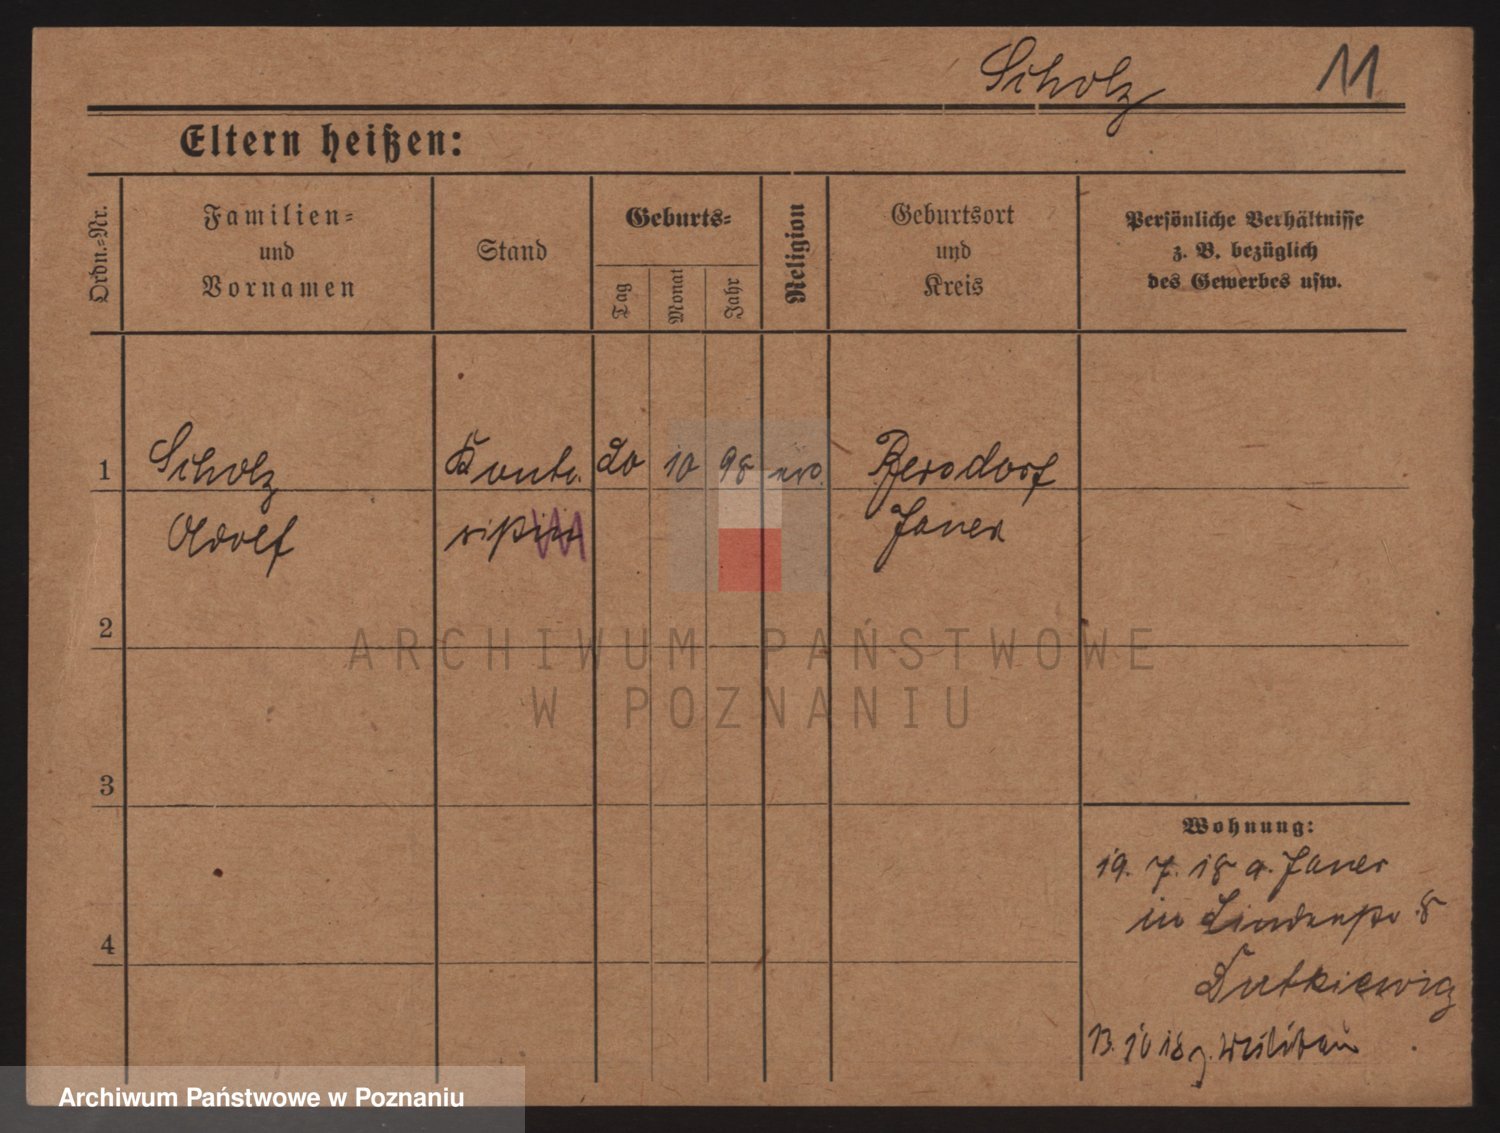 Scholz 11
Eltern heißen:
Ordn.=Nr.
Familien=
und
Vornamen
Stand
Geburts=
Tag
Monat
Jahr
Religion
Geburtsort
und
Kreis
Persönliche Verhältnisse
z. B. bezüglich
des Gewerbes usw.
1 Scholz Konto 20 10 98 Bersdorf
Adolf ristin Jauer
2
ARCHIWUM PAŃSTWOWE
W POZNANIU
3
Wohnung:
19. 7. 18 a. Jauer
in Lindenstr 8
4
Dutkiewicz
13. 10 18
Archiwum Państwowe w Poznaniu